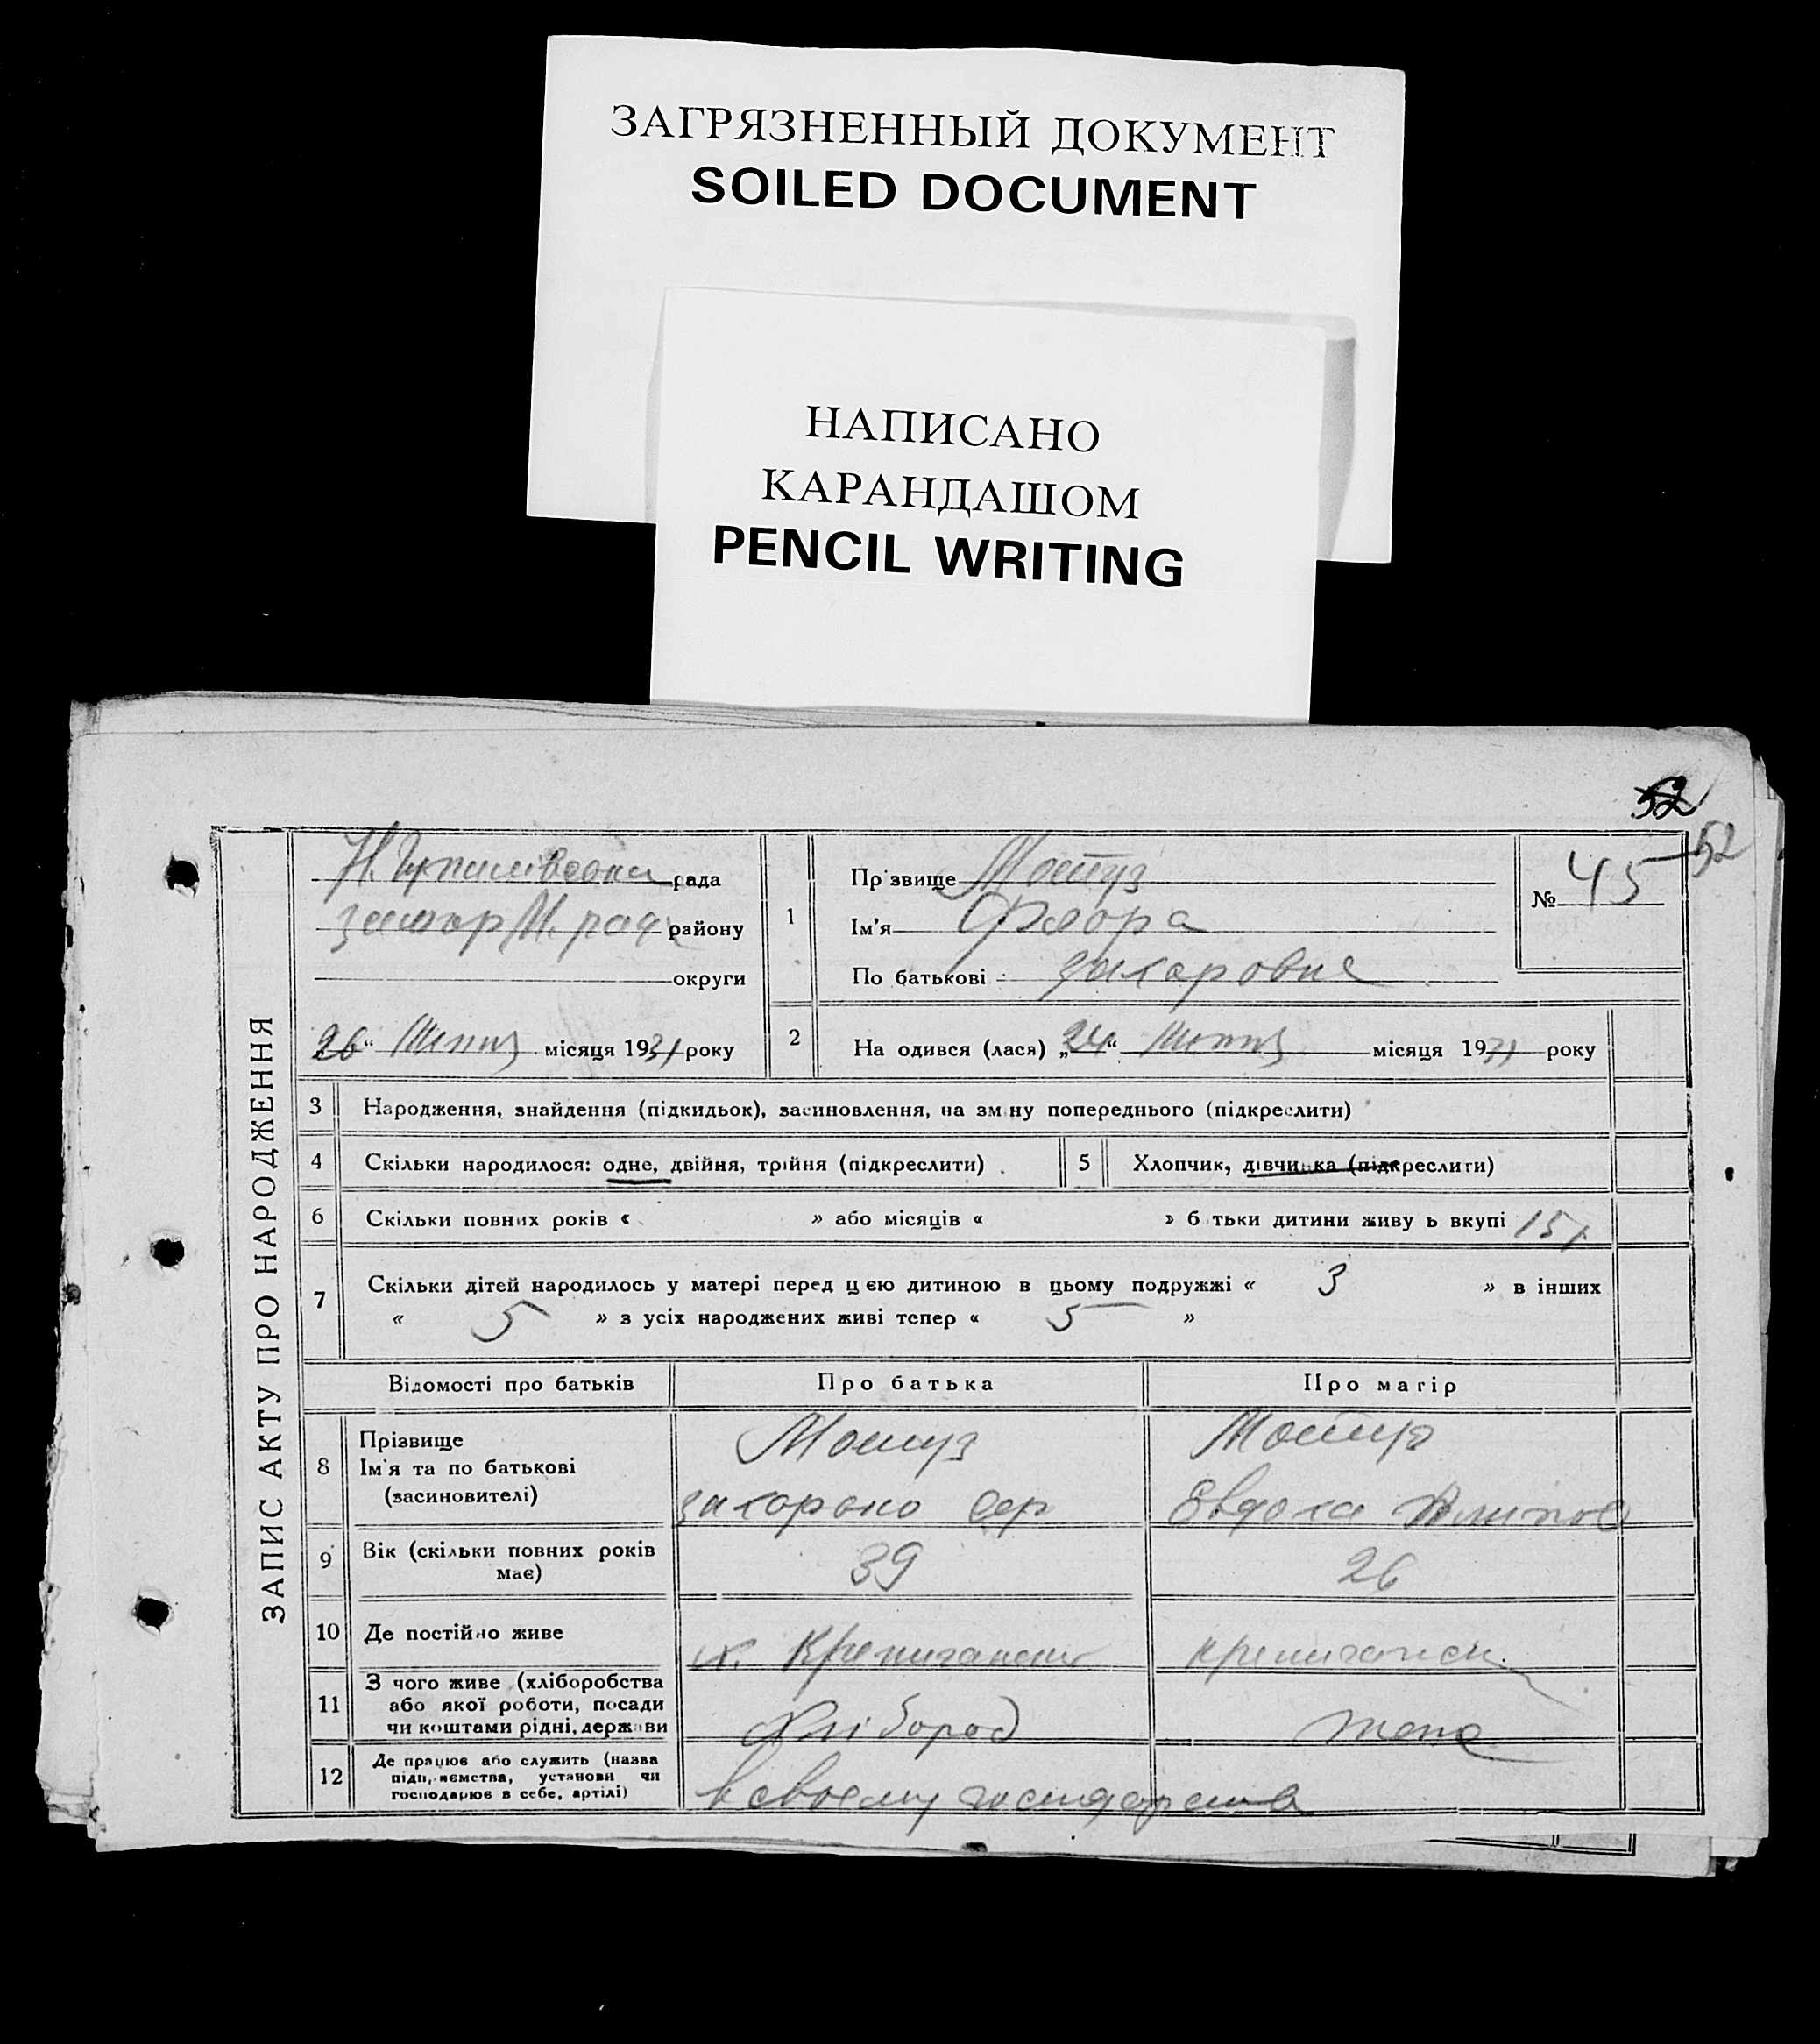 ЗАГРЯЗНЕННЫЙ ДОКУМЕНТ
SOILED DOCUMENT
НАПИСАНО
КАРАНДАШОМ
PENCIL WRITING
52
52
ЗАПИС АКТУ ПРО НАРОДЖЕННЯ
рада
району
округи
„26“ місяця 1931 року
1
Прізвище Мотуз
Ім'я Фльора
По батькові Захаровна
№ 45
2 На одився (лася) „24“ місяця 1931 року
3 Народження, знайдення (підкидьок), засиновлення, на зміну попереднього (підкреслити)
4 Скільки народилося: одне, двійня, трійня (підкреслити)
5 Хлопчик, дівчинка (підкреслити)
6 Скільки повних років « » або місяців « » батьки дитини живуть вкупі
7 Скільки дітей народилось у матері перед цією дитиною в цьому подружжі « 3 » в інших
« 5 » з усіх народжених живі тепер « 5 »
Відомості про батьків Про батька Про матір
8 Прізвище Мотуз Мотуз
Ім'я та по батькові
(засиновителі)
Евдоха
9 Вік (скільки повних років має) 39 26
10 Де постійно живе х.
11 З чого живе (хліборобства
або якої роботи, посади
чи коштами рідні, держави
Хлібороб жена
12 Де працює або служить (назва
підприємства, установи чи
господарює в себе, артілі)
в своему господарства